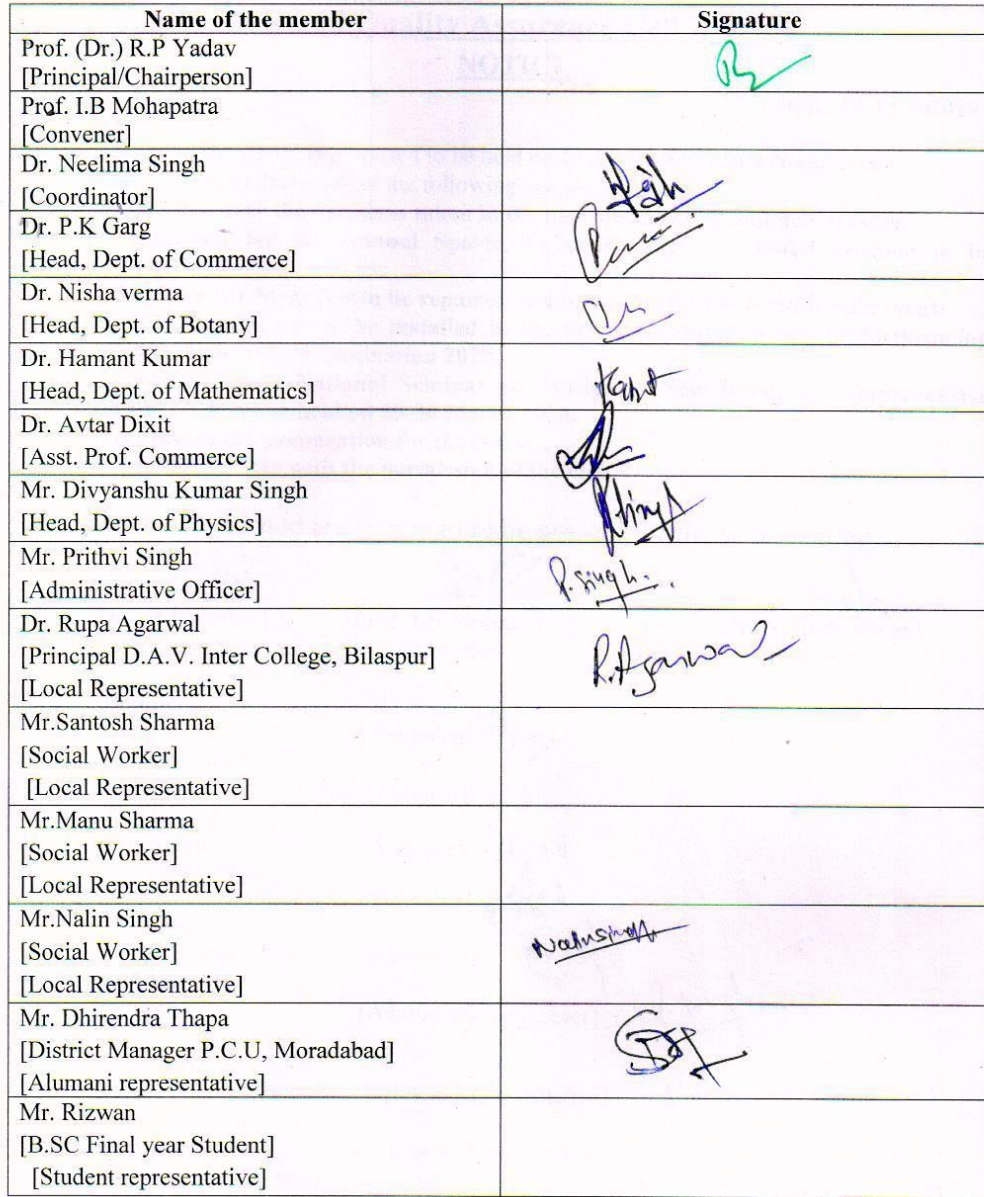 Name of the member Signature
Prof. (Dr.) R.P Yadav
[Principal/Chairperson]
Prof. I.B Mohapatra
[Convener]
Dr. Neelima Singh
[Coordinator]
Dr. P.K Garg
[Head, Dept. of Commerce]
Dr. Nisha verma
[Head, Dept. of Botany]
Dr. Hamant Kumar
[Head, Dept. of Mathematics]
Dr. Avtar Dixit
[Asst. Prof. Commerce]
Mr. Divyanshu Kumar Singh
[Head, Dept. of Physics]
Mr. Prithvi Singh
[Administrative Officer]
P. Singh.
Dr. Rupa Agarwal
[Principal D.A.V. Inter College, Bilaspur]
[Local Representative]
R. Agarwal
Mr.Santosh Sharma
[Social Worker]
[Local Representative]
Mr.Manu Sharma
[Social Worker]
[Local Representative]
Mr.Nalin Singh
[Social Worker]
[Local Representative]
Mr. Dhirendra Thapa
[District Manager P.C.U, Moradabad]
[Alumani representative]
Mr. Rizwan
[B.SC Final year Student]
[Student representative]